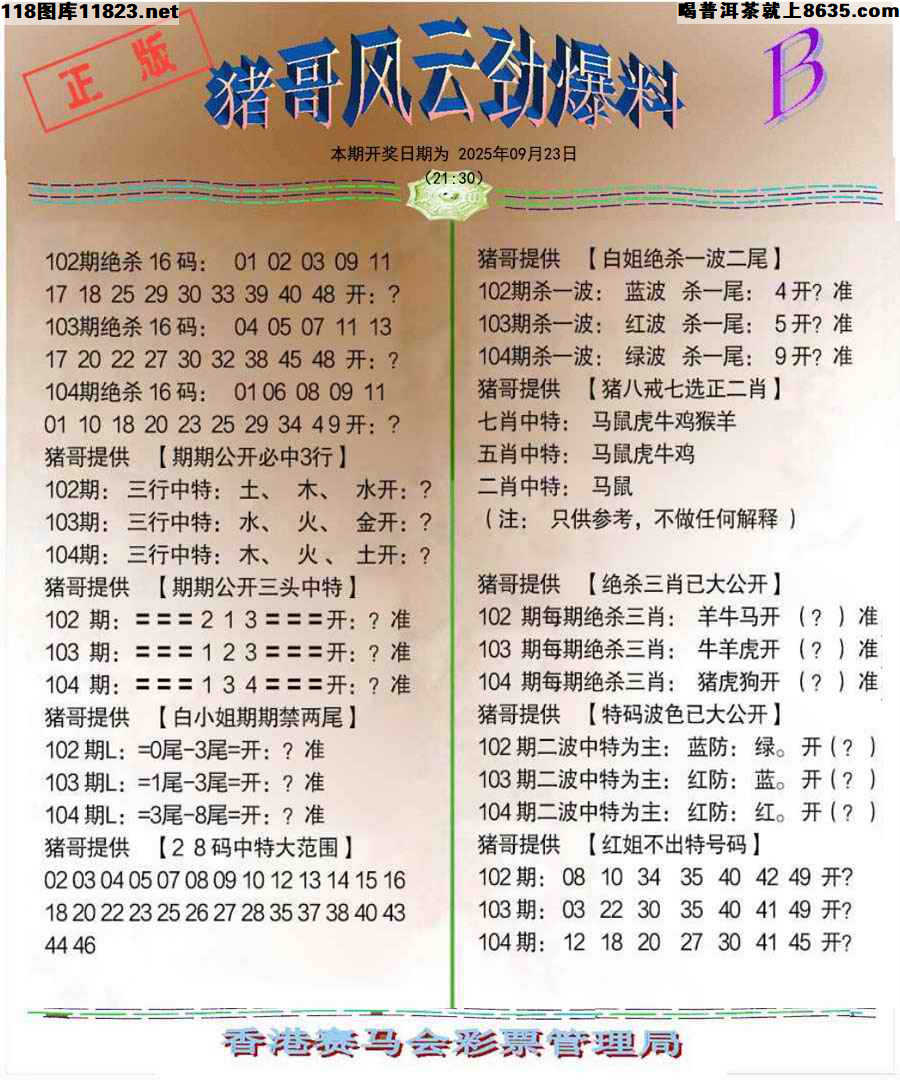 118图库11823.net
喝普洱茶就上8635.com
正版
猪哥风云劲爆料
B
本期开奖日期为 2025年09月23日
(21:30)
102期绝杀16码： 01 02 03 09 11
17 18 25 29 30 33 39 40 48 开：?
103期绝杀16码： 04 05 07 11 13
17 20 22 27 30 32 38 45 48 开：?
104期绝杀16码： 01 06 08 09 11
01 10 18 20 23 25 29 34 4 9 开：?
猪哥提供 【期期公开必中3行】
102期：三行中特：土、 木、 水开：?
103期：三行中特：水、 火、 金开：?
104期：三行中特：木、 火、 土开：?
猪哥提供 【期期公开三头中特】
102 期：=== 2 1 3 ===开：? 准
103 期：=== 1 2 3 ===开：? 准
104 期：=== 1 3 4 ===开：? 准
猪哥提供 【白小姐期期禁两尾】
102期L：=0尾-3尾=开：? 准
103期L：=1尾-3尾=开：? 准
104期L：=3尾-8尾=开：? 准
猪哥提供 【28码中特大范围】
02 03 04 05 07 08 09 10 12 13 14 15 16
18 20 22 23 25 26 27 28 35 37 38 40 43
44 46
猪哥提供 【白姐绝杀一波二尾】
102期杀一波： 蓝波 杀一尾： 4开? 准
103期杀一波： 红波 杀一尾： 5开? 准
104期杀一波： 绿波 杀一尾： 9开? 准
猪哥提供 【猪八戒七选正二肖】
七肖中特： 马鼠虎牛鸡猴羊
五肖中特： 马鼠虎牛鸡
二肖中特： 马鼠
（注： 只供参考，不做任何解释 ）
猪哥提供 【绝杀三肖已大公开】
102 期每期绝杀三肖： 羊牛马开 （? ）准
103 期每期绝杀三肖： 牛羊虎开 （? ）准
104 期每期绝杀三肖： 猪虎狗开 （? ）准
猪哥提供 【特码波色已大公开】
102期二波中特为主： 蓝防：绿。开(? )
103期二波中特为主： 红防：蓝。开(? )
104期二波中特为主： 红防：红。开(? )
猪哥提供 【红姐不出特号码】
102期： 08 10 34 35 40 42 49 开?
103期： 03 22 30 35 40 41 49 开?
104期： 12 18 20 27 30 41 45 开?
香港赛马会彩票管理局